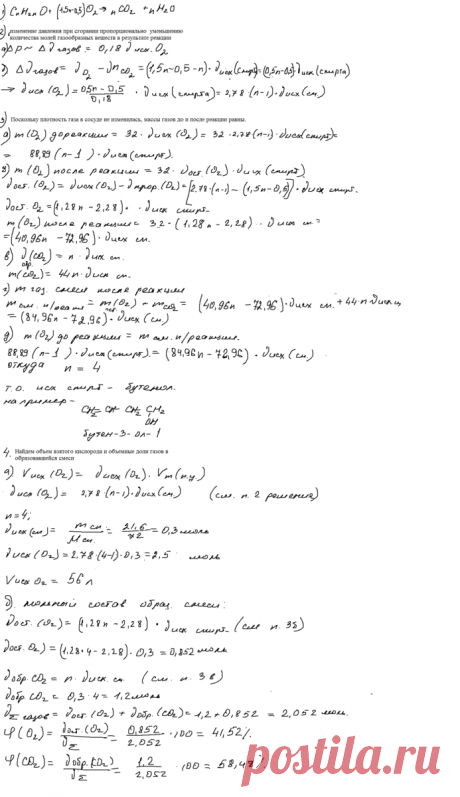 1) CnH2nO + (1,5n-0,5)O2 → nCO2 + nH2O
2) изменение давления при сгорании пропорционально уменьшению
количества молей газообразных веществ в результате реакции
а) ΔP ~ Δ∂газов = 0,18 ∂исх. O2
б) Δ∂газов = ∂O2 - ∂nCO2 = (1,5n-0,5-n)·∂исх(спирт)=(0,5n-0,5)·∂исх(спирта)
→ ∂исх(O2) = 0,5n-0,5 / 0,18 · ∂исх(спирта) = 2,78·(n-1)·∂исх(сп.)
3) Поскольку плотность газа в сосуде не изменилась, массы газов до и после реакции равны.
а) m(O2) до реакции = 32·∂исх(O2) = 32·2,78(n-1)·∂исх(спирт)=
= 88,89(n-1)·∂исх(спирт).
б) m(O2) после реакции = 32·∂ост.(O2)·∂исх(спирт)
∂ост.(O2) = ∂исх(O2) - ∂прор.(O2) = [2,78·(n-1) - (1,5n-0,5)]·∂исх спирт.
∂ост. O2 = (1,28n - 2,28)·∂исх спирт
m(O2) после реакции = 32·(1,28n - 2,28)·∂исх сп =
= (40,96n - 72,96)·∂исх сп.
в) ∂обр.(CO2) = n·∂исх сп.
m(CO2) = 44n·∂исх сп.
г) m газ. смеси после реакции
m см. п/реакт = m(O2) + mCO2 = (40,96n - 72,96)·∂исх сп. + 44n·∂исх сп
= (84,96n - 72,96)·∂исх(сп.)
д) m(O2) до реакции = m см. п/реакции.
88,89(n-1)·∂исх(спирт) = (84,96n - 72,96)·∂исх(сп.)
откуда n = 4
т.о. исх спирт - бутенол.
например -
CH2=CH-CH2-CH2
OH
бутен-3-ол-1
4. Найдем объем взятого кислорода и объемные доли газов в
образовавшейся смеси
а) Vисх(O2) = ∂исх(O2)·Vm(н.у.)
∂исх(O2) = 2,78(n-1)·∂исх(сп.) (см. п. 2 решения)
n=4;
∂исх(сп) = mсп / Mсп. = 21,6 / 72 = 0,3 моль
∂исх(O2) = 2,78·(4-1)·0,3 = 2,5 моль
Vисх O2 = 56 л
б) мольный состав образ. смеси:
∂ост.(O2) = (1,28n - 2,28)·∂исх спирт (см п. 3б)
∂ост. O2) = (1,28·4 - 2,28)·0,3 = 0,852 моль
∂обр. CO2 = n·∂исх. сп. (см. п. 3 в)
∂обр CO2 = 0,3·4 = 1,2 моль
∂Σ газов = ∂ост.(O2) + ∂обр.(CO2) = 1,2 + 0,852 = 2,052 моль.
φ(O2) = ∂ост.(O2) / ∂Σ = 0,852 / 2,052 ·100 = 41,52%.
φ(CO2) = ∂обр.(CO2) / ∂Σ = 1,2 / 2,052 ·100 = 58,48%
postila.ru